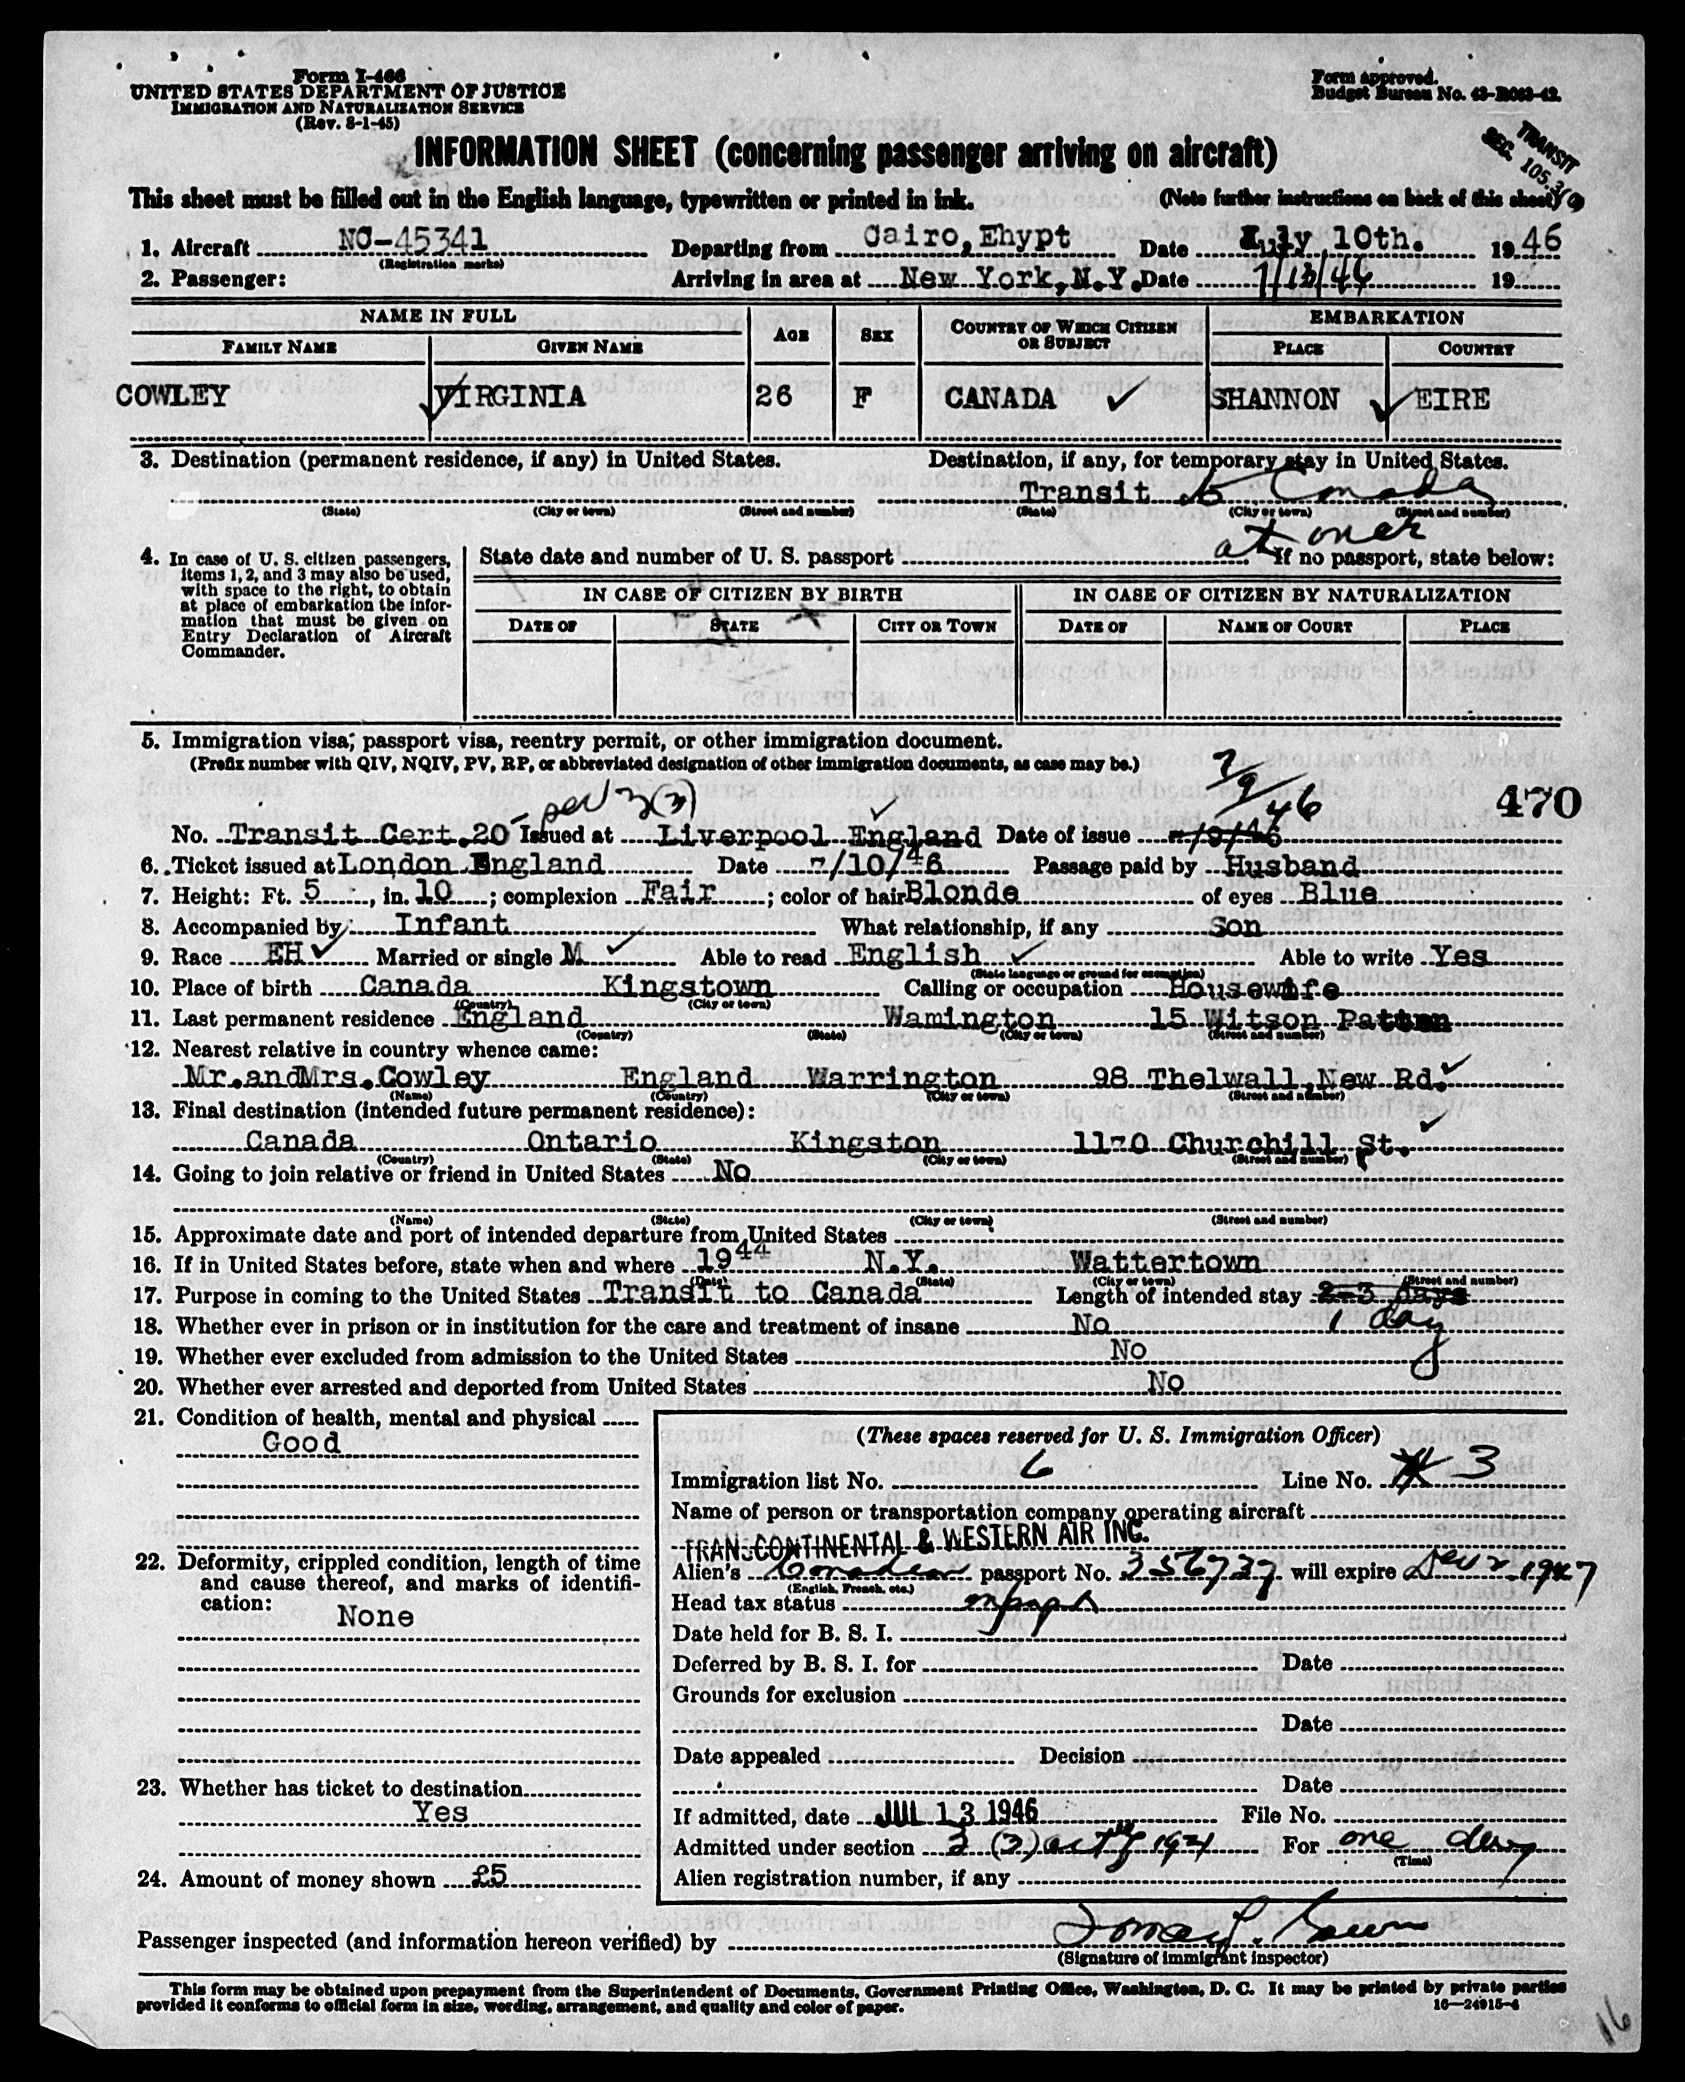 Form I-466
UNITED STATES DEPARTMENT OF JUSTICE
IMMIGRATION AND NATURALIZATION SERVICE
(Rev. 8-1-45)
Form approved.
Budget Bureau No. 43-R063-42.
TRANSIT
SEC. 105.3
INFORMATION SHEET (concerning passenger arriving on aircraft)
This sheet must be filled out in the English language, typewritten or printed in ink. (Note further instructions on back of this sheet)
1. Aircraft NC-45341 Departing from Cairo, Ehypt Date July 10th. 1946
(Registration marks)
2. Passenger: Arriving in area at New York, N.Y. Date 7/13/46 19
NAME IN FULL AGE SEX COUNTRY OF WHICH CITIZEN OR SUBJECT EMBARKATION
FAMILY NAME GIVEN NAME PLACE COUNTRY
COWLEY VIRGINIA 26 F CANADA SHANNON EIRE
3. Destination (permanent residence, if any) in United States. Destination, if any, for temporary stay in United States.
Transit to Canada
(State) (City or town) (Street and number) (State) (City or town) (Street and number)
at once
4. In case of U. S. citizen passengers, items 1, 2, and 3 may also be used, with space to the right, to obtain at place of embarkation the information that must be given on Entry Declaration of Aircraft Commander.
State date and number of U. S. passport If no passport, state below:
IN CASE OF CITIZEN BY BIRTH IN CASE OF CITIZEN BY NATURALIZATION
DATE OF STATE CITY OR TOWN DATE OF NAME OF COURT PLACE
5. Immigration visa, passport visa, reentry permit, or other immigration document.
(Prefix number with QIV, NQIV, PV, RP, or abbreviated designation of other immigration documents, as case may be.)
7/9/46
470
No. Transit Cert. 20 Issued at Liverpool England Date of issue
6. Ticket issued at London England Date 7/10/46 Passage paid by Husband
7. Height: Ft. 5, in. 10; complexion Fair; color of hair Blonde of eyes Blue
8. Accompanied by Infant What relationship, if any Son
9. Race EH Married or single M Able to read English Able to write Yes
(State language or ground for exemption)
10. Place of birth Canada Kingstown Calling or occupation Housewife
(Country) (City or town)
11. Last permanent residence England Wamington 15 Witson
(Country) (State) (City or town) (Street and number)
12. Nearest relative in country whence came:
Mr.andMrs.Cowley England Warrington 98 Thelwall,New Rd.
(Name) (Country) (City or town) (Street and number)
13. Final destination (intended future permanent residence):
Canada Ontario Kingston Churchill St.
(Country) (State) (City or town) (Street and number)
14. Going to join relative or friend in United States No
(Name) (State) (City or town) (Street and number)
15. Approximate date and port of intended departure from United States
16. If in United States before, state when and where 1944 N.Y. Wattertown
(Date) (State) (City or town) (Street and number)
17. Purpose in coming to the United States Transit to Canada Length of intended stay 2-3 days
1 day
18. Whether ever in prison or in institution for the care and treatment of insane No
19. Whether ever excluded from admission to the United States No
20. Whether ever arrested and deported from United States No
21. Condition of health, mental and physical
Good
22. Deformity, crippled condition, length of time and cause thereof, and marks of identification:
None
23. Whether has ticket to destination
Yes
24. Amount of money shown £5
(These spaces reserved for U. S. Immigration Officer)
Immigration list No. 6 Line No. 3
Name of person or transportation company operating aircraft
TRANSCONTINENTAL & WESTERN AIR INC.
Alien's Canadian passport No. 356737 will expire 1947
(English, French, etc.)
Head tax status
Date held for B. S. I.
Deferred by B. S. I. for Date
Grounds for exclusion
Date
Date appealed Decision
Date
If admitted, date JUL 13 1946 File No.
Admitted under section 3 (3) act of 1924 For one day
(Time)
Alien registration number, if any
Passenger inspected (and information hereon verified) by
(Signature of immigrant inspector)
This form may be obtained upon prepayment from the Superintendent of Documents, Government Printing Office, Washington, D. C. It may be printed by private parties
provided it conforms to official form in size, wording, arrangement, and quality and color of paper.
16—24915-4
16